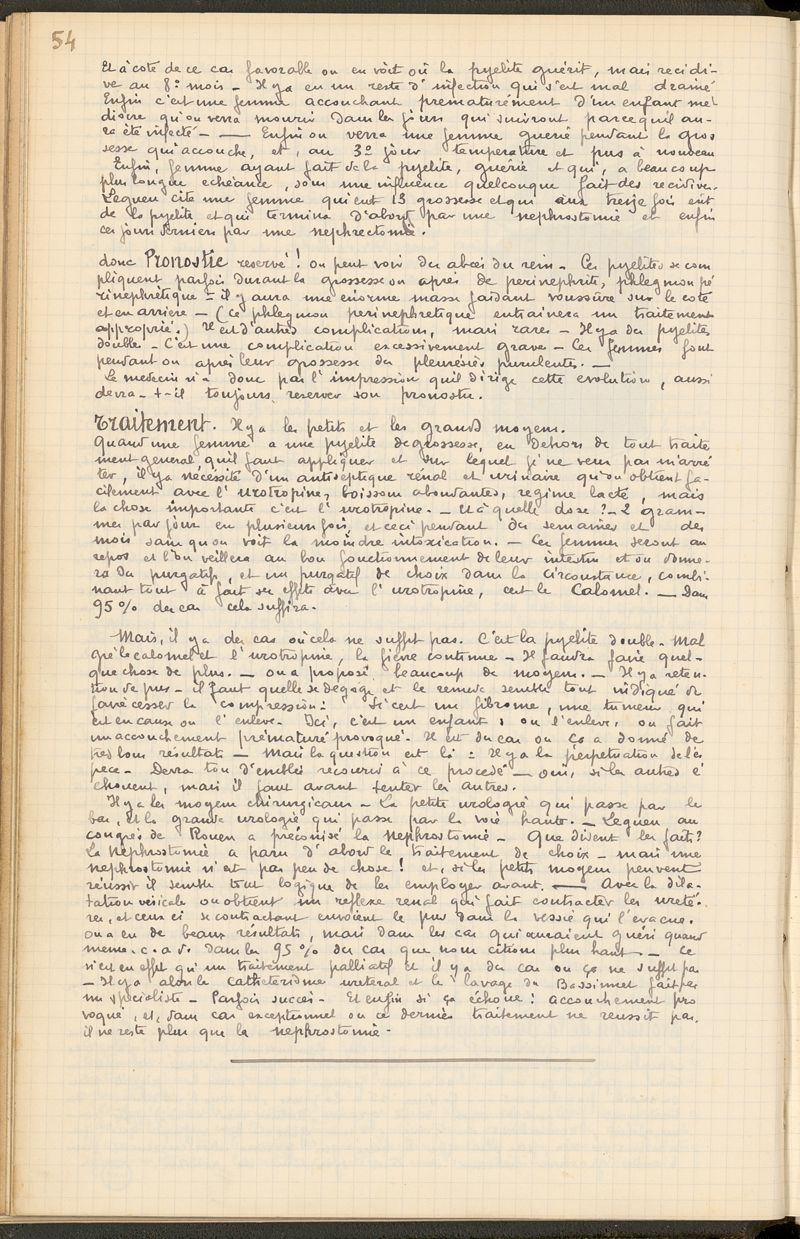 54
Et à coté de ce cas favorable on en voit où la pyelite guérit, mais recidi-
ve au 8e mois - Il y a eu un reste d'infection qui s'est mal drainé
Enfin c'est une femme accouchant prematurément d'un enfant mé
diocre qu'on verra mourir dans les jours qui suivront parcequ'il au-
ra été infecté - — Enfin on verra une femme guérie pendant la gros
sesse qui accouche, et, au 3e jour température et pus à nouveau
Enfin, femme ayant fait de la pyelite, guérie et qui, a beaucoup
plus longue echéance, sous une influence quelconque fait des recidives.
Legueu cite une femme qui eut 13 grossesses et qui aux treize fois eut
de la pyelite et qui termina d'abord par une nephrostomie et enfin
ces jours derniers par une nephrectomie.
donc Pronostic reservé! on peut voir des abcès du rein - Ces pyelites se com
pliquent parfois durant la grossesse ou après de perinephrite, phlegmon pé
rinephrétique - il y aura une énorme masse faisant voussure sur le coté
et en arrière - (ce phlegmon perinephretique entrainera un traitement
approprié.) Il est d'autres complications, mais rares - Il y a des pyelites
doubles - C'est une complication excessivement grave - Ces femmes font
pendant ou après leur grossesse des pleurésies purulentes. —
Le medecin n'a donc pas l'impression qu'il dirige cette evolution, aussi
devra-t-il toujours reserver son pronostic.
Traitement. Il y a les petits et les grands moyens.
Quand une femme a une pyelite de grossesse, en dehors de tout traite
ment general qu'il faut appliquer et sur lequel je ne veux pas m'arré
ter, il y a nécéssité d'un antiseptique rénal et urinaire qu'on obtient fa-
cilement avec l'urotropine, boissons abondantes, regime lacté, mais
la chose importante c'est l'urotropine. - Et à quelle dose ? - 2 gram-
mes par jour en plusieurs fois, et ceci pendant des semaines et des
mois sans qu'on voit la moindre intoxication. - Ces femmes seront au
repos et l'on veillera au bon fonctionnement de leur intestin et on donne-
ra du purgatif, et un purgatif de choix dans la circonstance, combi-
nant tout à fait ses effets avec l'urotropine, c'est le Calomel. — Dans
95 % des cas cela suffira.
Mais, il y a des cas où cela ne suffit pas. C'est la pyelite double. Mal
gré le calomel et l'urotropine, la fièvre continue - Il faudra faire quel-
que chose de plus. - on a proposé beaucoup de moyens. - Il y a reten-
tion de pus - il faut quelle se dégage et le remede semble tout indiqué de
faire cesser la compression: Si c'est un fibrome, une tumeur qui
est en cause on l'enleve. Ici, c'est un enfant: on l'enleve, on fait
un accouchement prématuré provoqué. Il est des cas ou ça a donné de
tres bons résultats - Mais la question est là: Il y a la perpétuation de l'es
pece - Devra t'on d'emblée recourir à ce procédé - oui, si les autres é
chouent, mais il faut avant tenter les autres.
Il y a les moyens chirurgicaux - La petite urologie qui passe par le
bas, et la grande urologie qui passe par la voie haute. - Legueu au
congrès de Rouen a préconisé la Nephrostomie - Que disent les faits?
La Nephrostomie a paru d'abord le traitement de choix - mais une
nephrostomie n'est pas peu de chose! et, si les petits moyens peuvent
réussir il semble tout logique de les employer avant. — Avec la dila-
tation vésicale on obtient un reflexe renal qui fait contracter les uretè-
res, et ceux ci se contractant envoient le pus dans la vessie qui l'évacue.
On a eu de beaux résultats, mais dans les cas qui auraient guéri quand
meme. c.a.d. dans les 95 % des cas que nous citions plus haut - Ce
n'est en effet qu'un traitement palliatif et il y a des cas ou ça ne suffit pas
- Il y a alors le Catheterisme ureteral et le lavage du Bassinnet fait par
un spécialiste - Parfois succès - Et enfin si ça échoue: accouchement pro
voqué, et, dans cas exceptionnel ou ce dernier traitement ne reussit pas,
il ne reste plus que la nephrostomie -